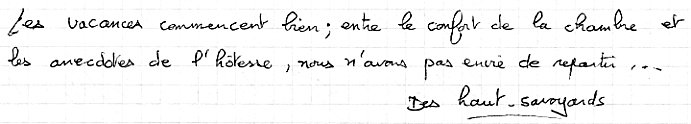 Les vacances commencent bien ; entre le confort de la chambre et
les anecdotes de l'hôtesse, nous n'avons pas envie de repartir ...
Des haut-savoyards